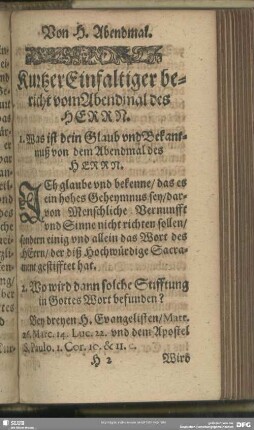 Von H. Abendmal.
Kurtzer Einfaltiger be-
richt vom Abendmal des
HERRN.
1. Was ist dein Glaub vnd Bekant-
nuß von dem Abendmal des
HERRN.
JCh glaube vnd bekenne/ das es
ein hohes Geheymnus sey/ dar-
von Menschliche Vernunfft
vnd Sinne nicht richten sollen/
sondern einig vnd allein das Wort des
HErrn/ der diß Hochwürdige Sacra-
ment gestifftet hat.
2. Wo wird dann solche Stifftung
in Gottes Wort befunden?
Bey dreyen H. Evangelisten/ Matt.
26. Marc. 14. Luc. 22. vnd dem Apostel
S. Paulo. 1. Cor. 10. & 11. c.
H 2 Wird
SLUB
DFG